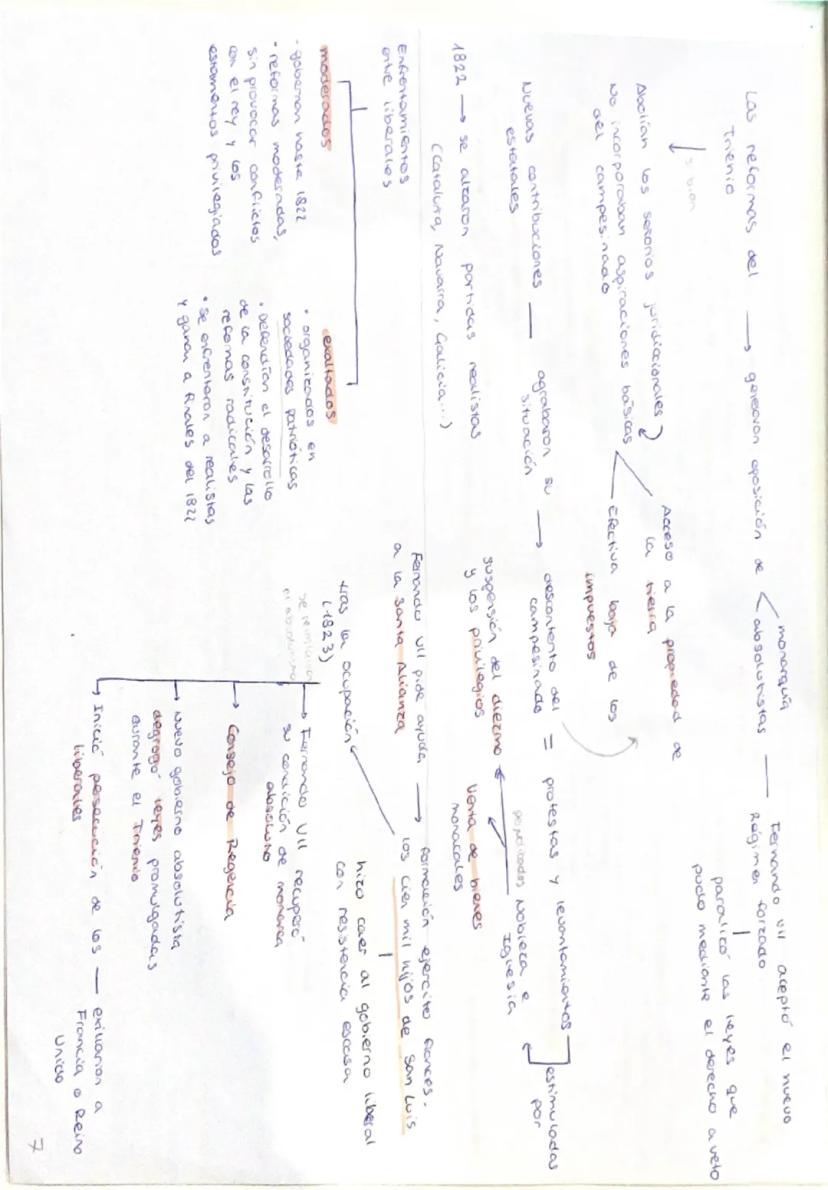 Las reformas del Trienio → generaron oposición de
monarquía
absolutistas — Fernando VII aceptó el nuevo
Régimen forzado
paralizó las leyes que
pudo mediante el derecho a veto
si bien
Abolían los señorios jurídiccionales
No incorporaban aspiraciones básicas
del campesinado
Acceso a la propiedad de
la tierra
Efectiva baja de los
impuestos
Nuevas contribuciones
estatales
agrabaron su
situación
→ descontento del
campesinado
= protestas y levantamientos
estimuladas
por
perjudicados Nobleza e
Iglesia
suspensión del diezmo
y los privilegios
Venta de bienes
monacales
1822 → se alzaron partidas realistas
(Cataluña, Navarra, Galicia...)
Enfrentamientos
entre liberales
Fernando VII pide ayuda
a la Santa Alianza
→ formación ejercito francés.
los cien mil hijos de San Luis
hizo caer al gobierno liberal
con resistencia escasa
tras la ocupación
(1823)
moderados
- gobiernan hasta 1822
• reformas moderadas,
sin provocar conflictos
con el rey y los
estamentos privilegiados
exaltados
• organizados en
sociedades patrióticas
• Defendían el desarrollo
de la constitución y las
reformas radicales
• Se enfrentaron a realistas
y ganan a finales del 1822
se reinstaura
el absolutismo
→ Fernando VII recuperó
su condición de monarca
absoluto
→ Consejo de Regencia
→ Nuevo gobierno absolutista
degrogó leyes promulgadas
durante el Trienio
→ Inició persecución de los
liberales
— exiliaron a
Francia o Reino
Unido
7